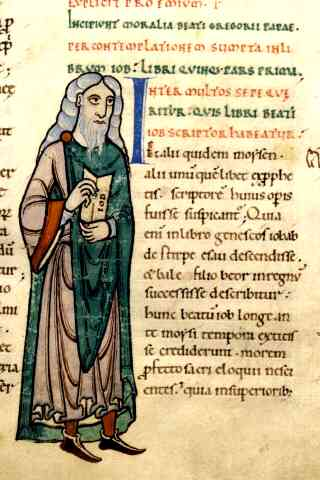 EXPLICIT PROEMIUM.
INCIPIUNT MORALIA BEATI GREGORII PAPAE.
PER CONTEMPLATIONEM SUMPTA IN LI
BRUM IOB. LIBRI QUINQ; PARS PRIMA.
INTER MULTOS SEPE QUE
RITUR. QUIS LIBRI BEATI
IOB SCRIPTOR HABEATUR.
Et alii quidem moysen.
alii unũ quẽlibet ex pphe
tis. scriptorẽ huius opis
fuisse suspicant. Quia
enĩ in libro geneseos iobab
de stirpe esau descendisse.
& bale filio beor in regnũ
successisse describitur.
hunc beatũ iob longe an
te moysi tempora extitis
se crediderunt. morem
pfecto sacri eloquii nesci
entes. quia in superiorib;
IOB